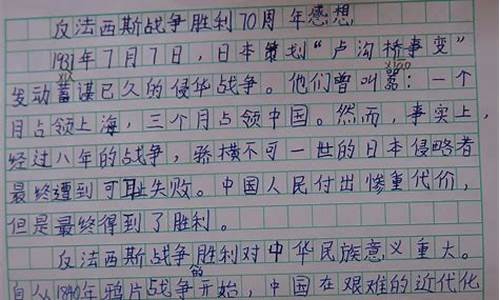 反法西斯战争胜利70周年感想
1937年7月7日，日本策划“卢沟桥事变”
发动蓄谋已久的侵华战争。他们曾叫嚣：一个
月占领上海，三个月占领中国。然而，事实上，
经过八年的战争，骄横不可一世的日本侵略者
最终遭到可耻失败。中国人民付出惨重代价，
但是最终得到了胜利。
反法西斯战争的胜利对中华民族意义重大。
自从1840年鸦片战争开始，中国在艰难的近代化